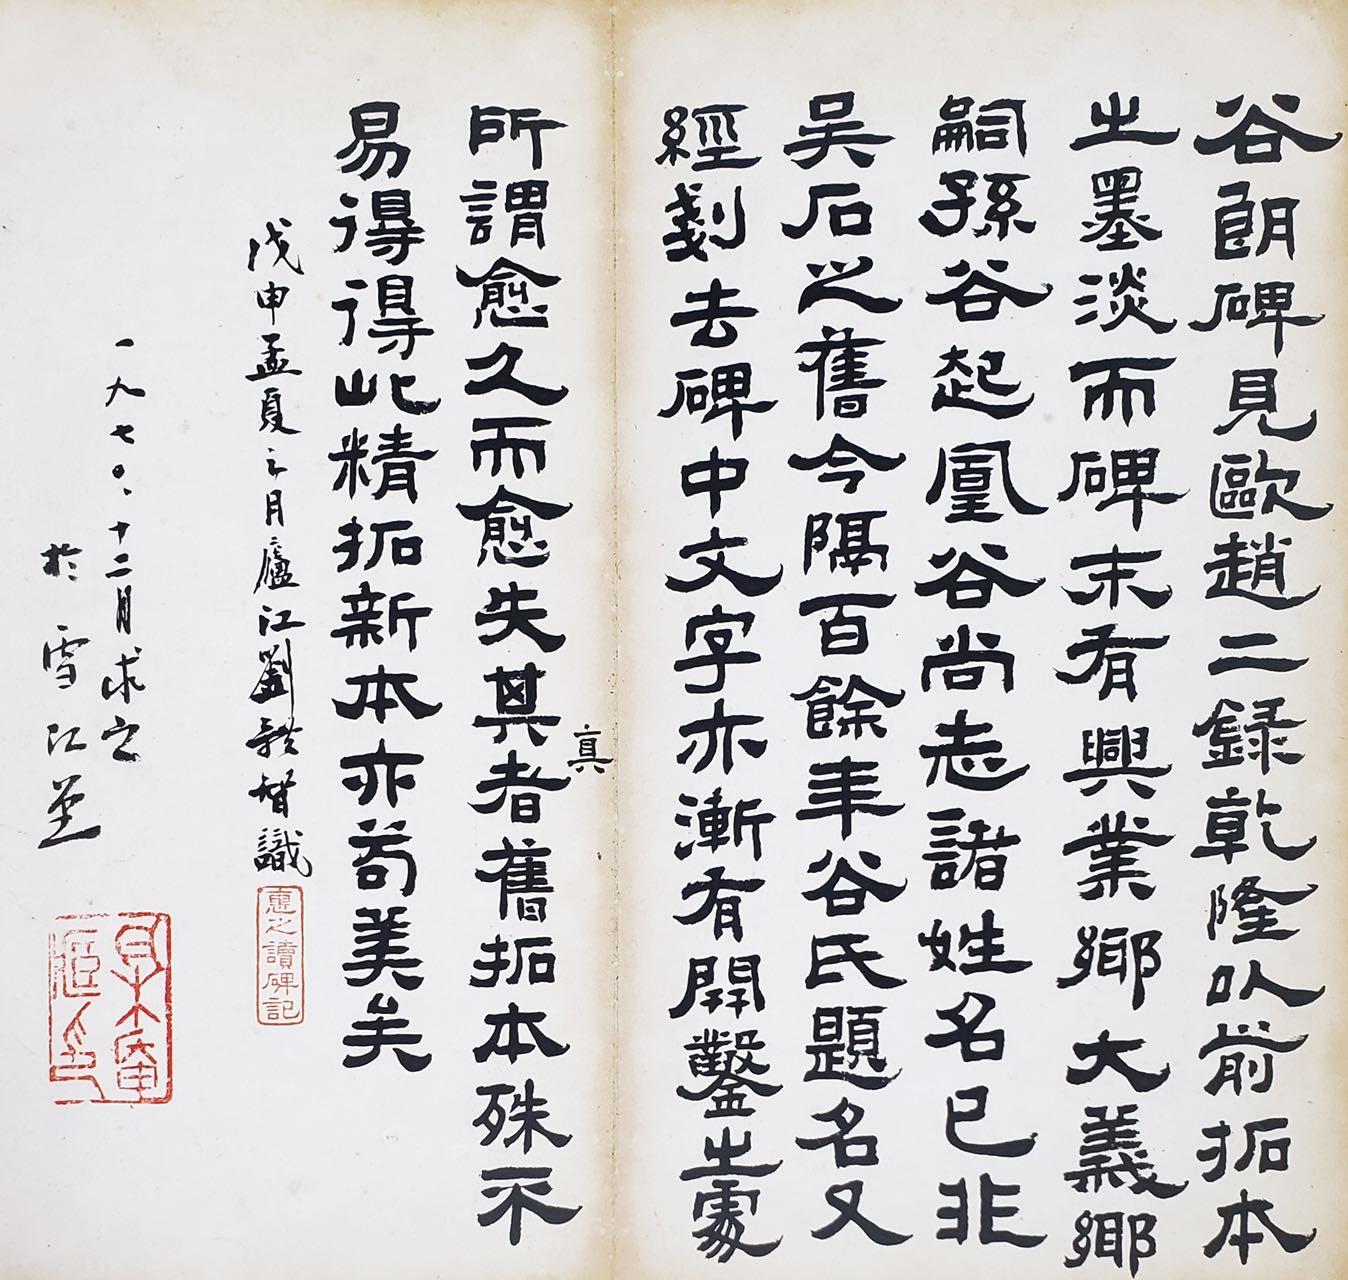 谷朗碑見歐趙二録乾隆以前拓本
之墨淡而碑末有興業鄉大義鄉
嗣孫谷起凰谷尚志諸姓名已非
吴石之舊今隔百餘年谷氏題名又
經剗去碑中文字亦漸有開鑿之處
所謂愈久而愈失其者舊拓本殊不
真
易得得此精拓新本亦苟美矣
戊申孟夏之月廬江劉體智識
惠之讀碑記
一九七〇.十二月求之
於雪江堂